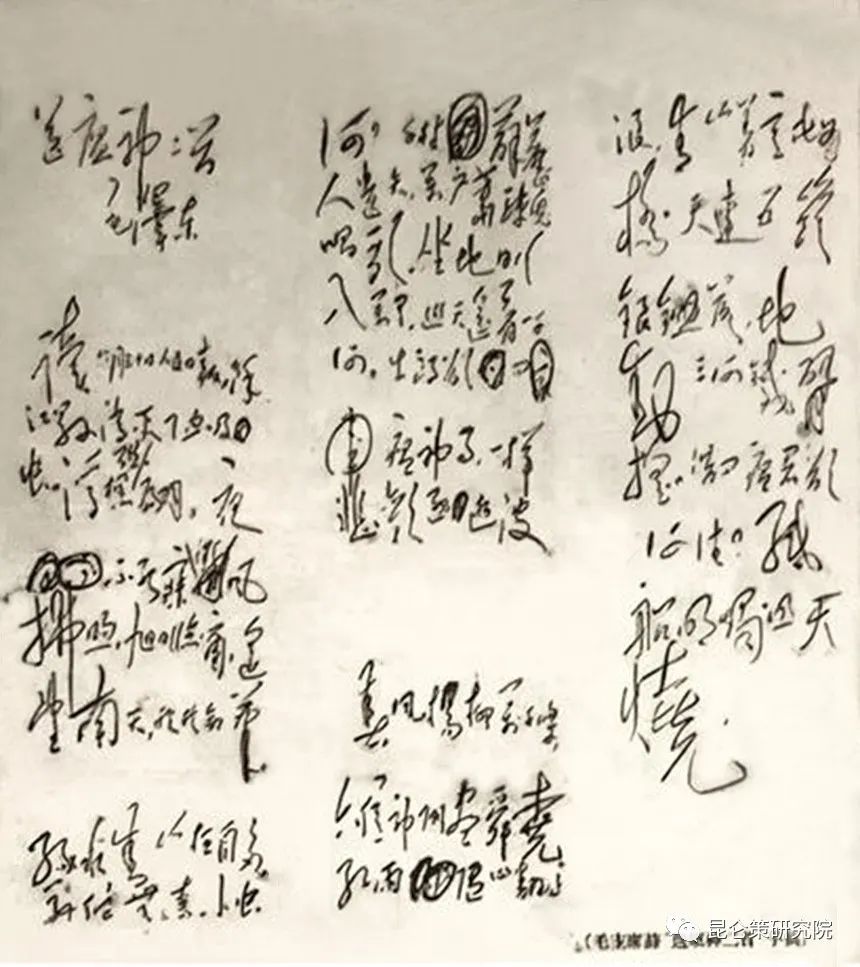 送瘟神二首
毛泽东
读六月卅日人民日报，余
江县消灭了血吸
虫，浮想联翩，夜
不能寐，微风
拂煦，旭日临窗，遥
望南天，欣然命笔
绿水青山枉自多
华佗无奈小虫
何，千村薜荔
人遗矢，万户萧疏鬼
唱歌，坐地日行
八万里，巡天遥看一千
河。牛郎欲问
瘟神事，一样
悲欢逐逝波
春风杨柳万千条
六亿神州尽舜尧
红雨随心翻作
浪，青山着意化为
桥，天连五岭
银锄落，地
动三河铁臂
摇。借问瘟君欲
何往，纸
船明烛照天
烧
（毛主席诗 送瘟神二首 手稿）
昆仑策研究院